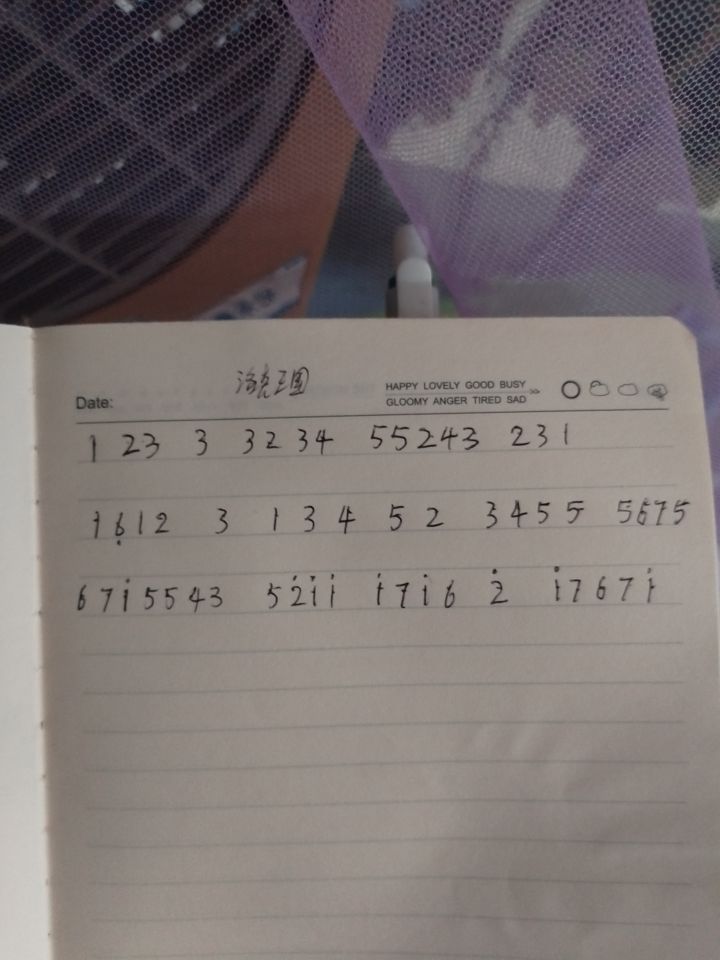 洛克王国
HAPPY LOVELY GOOD BUSY
Date:
GLOOMY ANGER TIRED SAD
1 23 3 32 34 55243 231
1 6̣ 12 3 1 3 4 5 2 3455 5675
67i̇5543 52̇i̇i̇ i̇7i̇6 2̇ i̇767i̇